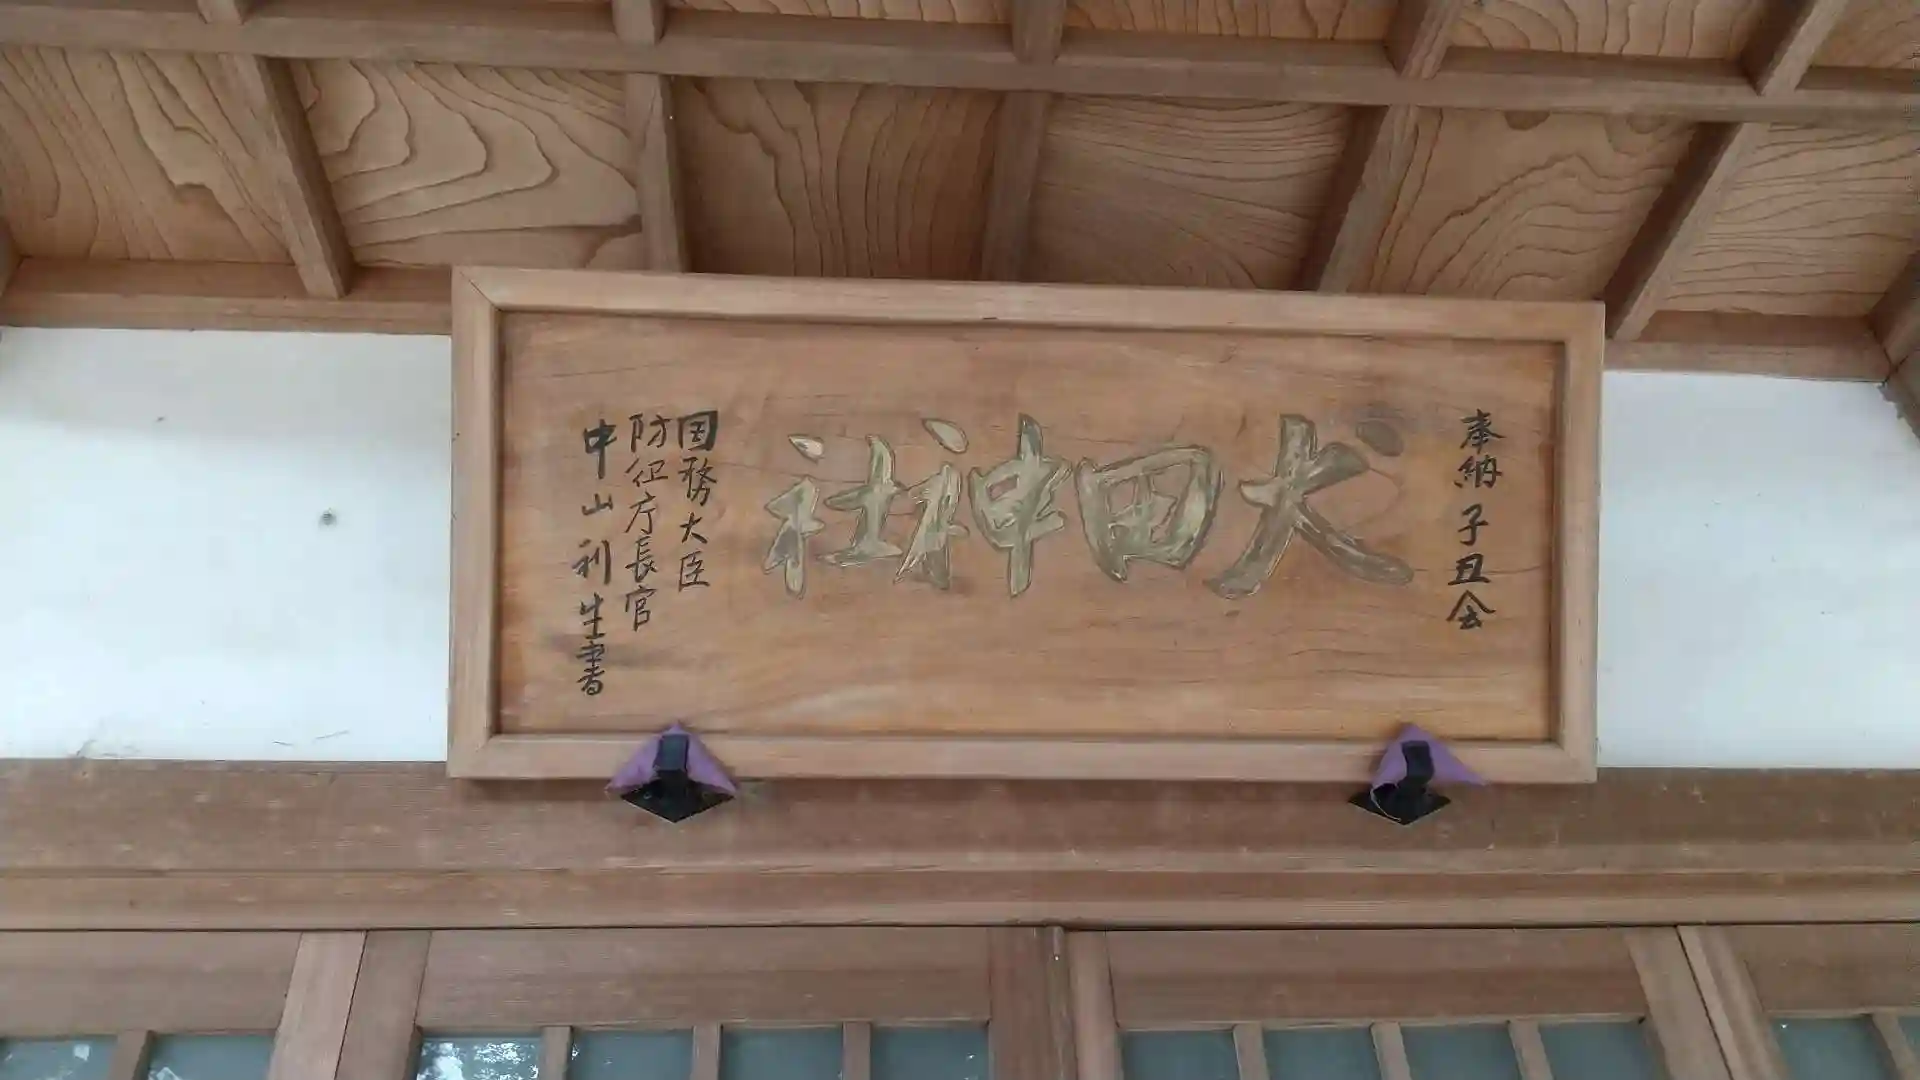 奉納 子丑会
犬田神社
国務大臣
防衛庁長官
中山利生書